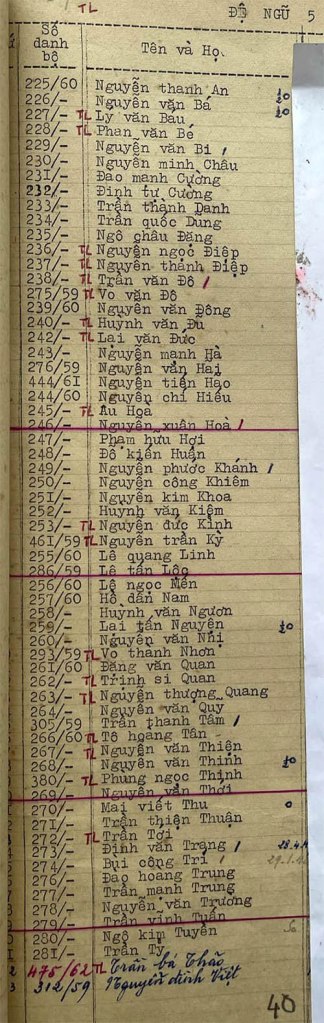 TL ĐỆ NGŨ 5
Số danh bộ Tên và Họ.
225/60 Nguyễn thanh An
226/- Nguyễn văn Bá
227/- TL Ly văn Báu
228/- TL Phan văn Bé
229/- Nguyễn văn Bi
230/- Nguyễn minh Châu
231/- Đao mạnh Cường
232/- Đinh tự Cường
233/- Trần thành Danh
234/- Trần quốc Dung
235/- Ngô châu Đặng
236/- TL Nguyễn ngọc Điệp
237/- TL Nguyễn thanh Điệp
238/- TL Trần văn Đô
275/59 TL Vo văn Đô
239/60 Nguyễn văn Đông
240/- TL Huynh văn Đu
242/- TL Lại văn Đức
243/- Nguyễn mạnh Hà
276/59 Nguyễn văn Hai
444/61 Nguyễn tiến Hạo
244/60 Nguyễn chí Hiếu
245/- TL Âu Họa
246/- Nguyễn xuân Hoà
247/- Phạm hưu Hợi
248/- Đỗ kiến Huấn
249/- Nguyễn phước Khánh
250/- Nguyễn công Khiêm
251/- Nguyễn kim Khoa
252/- Huynh văn Kiêm
253/- TL Nguyễn đức Kỉnh
461/59 TL Nguyễn trần Kỳ
255/60 Lê quang Linh
286/59 Lê tấn Lộc
256/60 Lê ngọc Mến
257/60 Hồ dần Nam
258/- Huỳnh văn Ngươn
259/- Lai tấn Nguyên
260/- Nguyễn văn Nhi
293/59 TL Vo thanh Nhơn
261/60 Đặng văn Quan
262/- TL Trinh si Quan
263/- TL Nguyễn thượng Quang
264/- Nguyễn văn Quy
305/59 Trần thanh Tâm
266/60 TL Tô hoang Tân
267/- TL Nguyễn văn Thiện
268/- Nguyễn văn Thinh
380/- TL Phung ngọc Thịnh
269/- Nguyễn văn Thới
270/- Mai viết Thu
271/- Trần thiện Thuận
272/- TL Trần Tới
273/- Đinh văn Trang
274/- Bui công Trí
276/- Đạo hoang Trung
277/- Trần mạnh Trung
278/- Nguyễn văn Trương
279/- Trần vĩnh Tuấn
280/- Ngô kim Tuyến
281/- Trần Ty
475/62 TL Trần bá Thảo
312/59 Nguyễn đình Việt
40